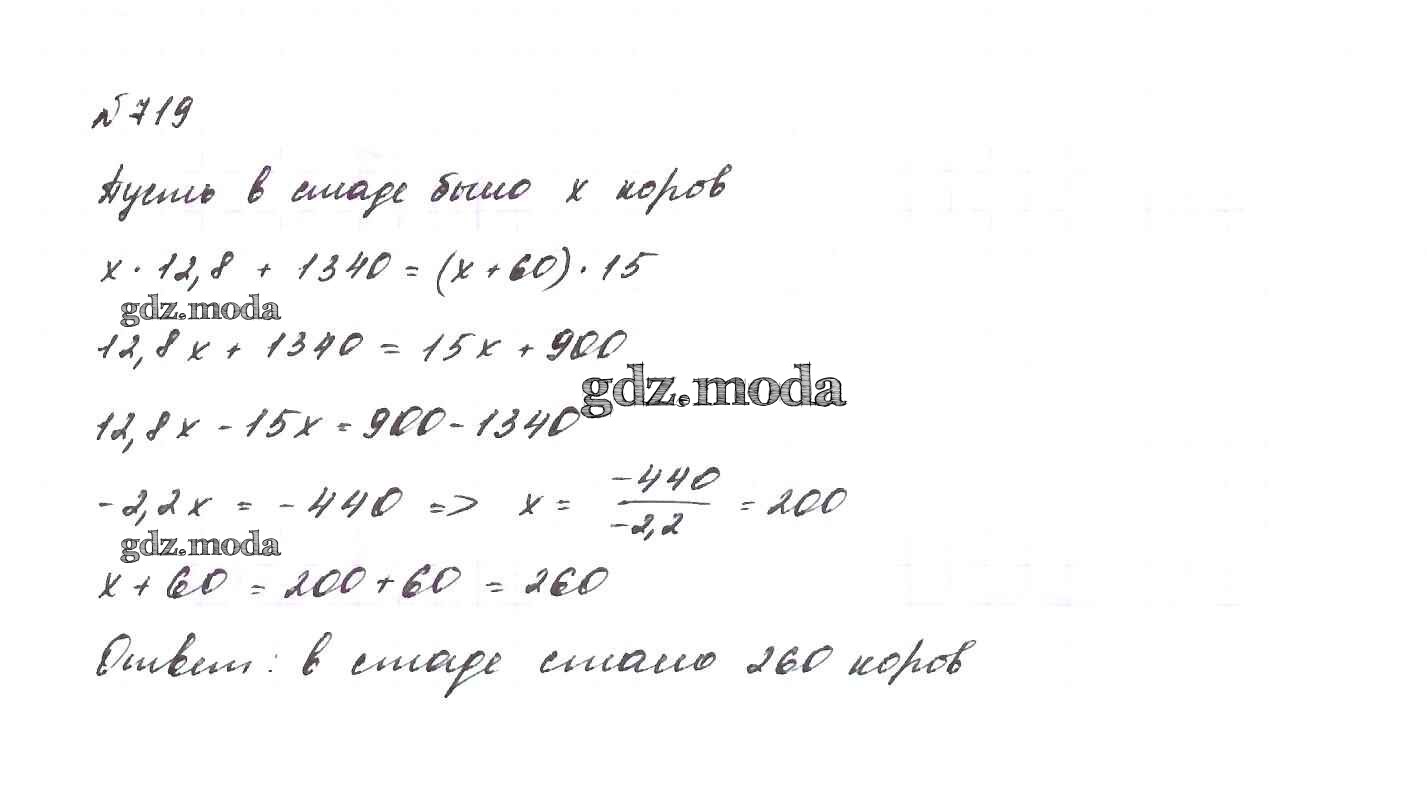 №719
Пусть в стаде было x коров
x · 12,8 + 1340 = (x + 60) · 15
gdz.moda
12,8x + 1340 = 15x + 900
gdz.moda
12,8x - 15x = 900 - 1340
-2,2x = -440 => x = -440/-2,2 = 200
gdz.moda
x + 60 = 200 + 60 = 260
Ответ: в стаде стало 260 коров